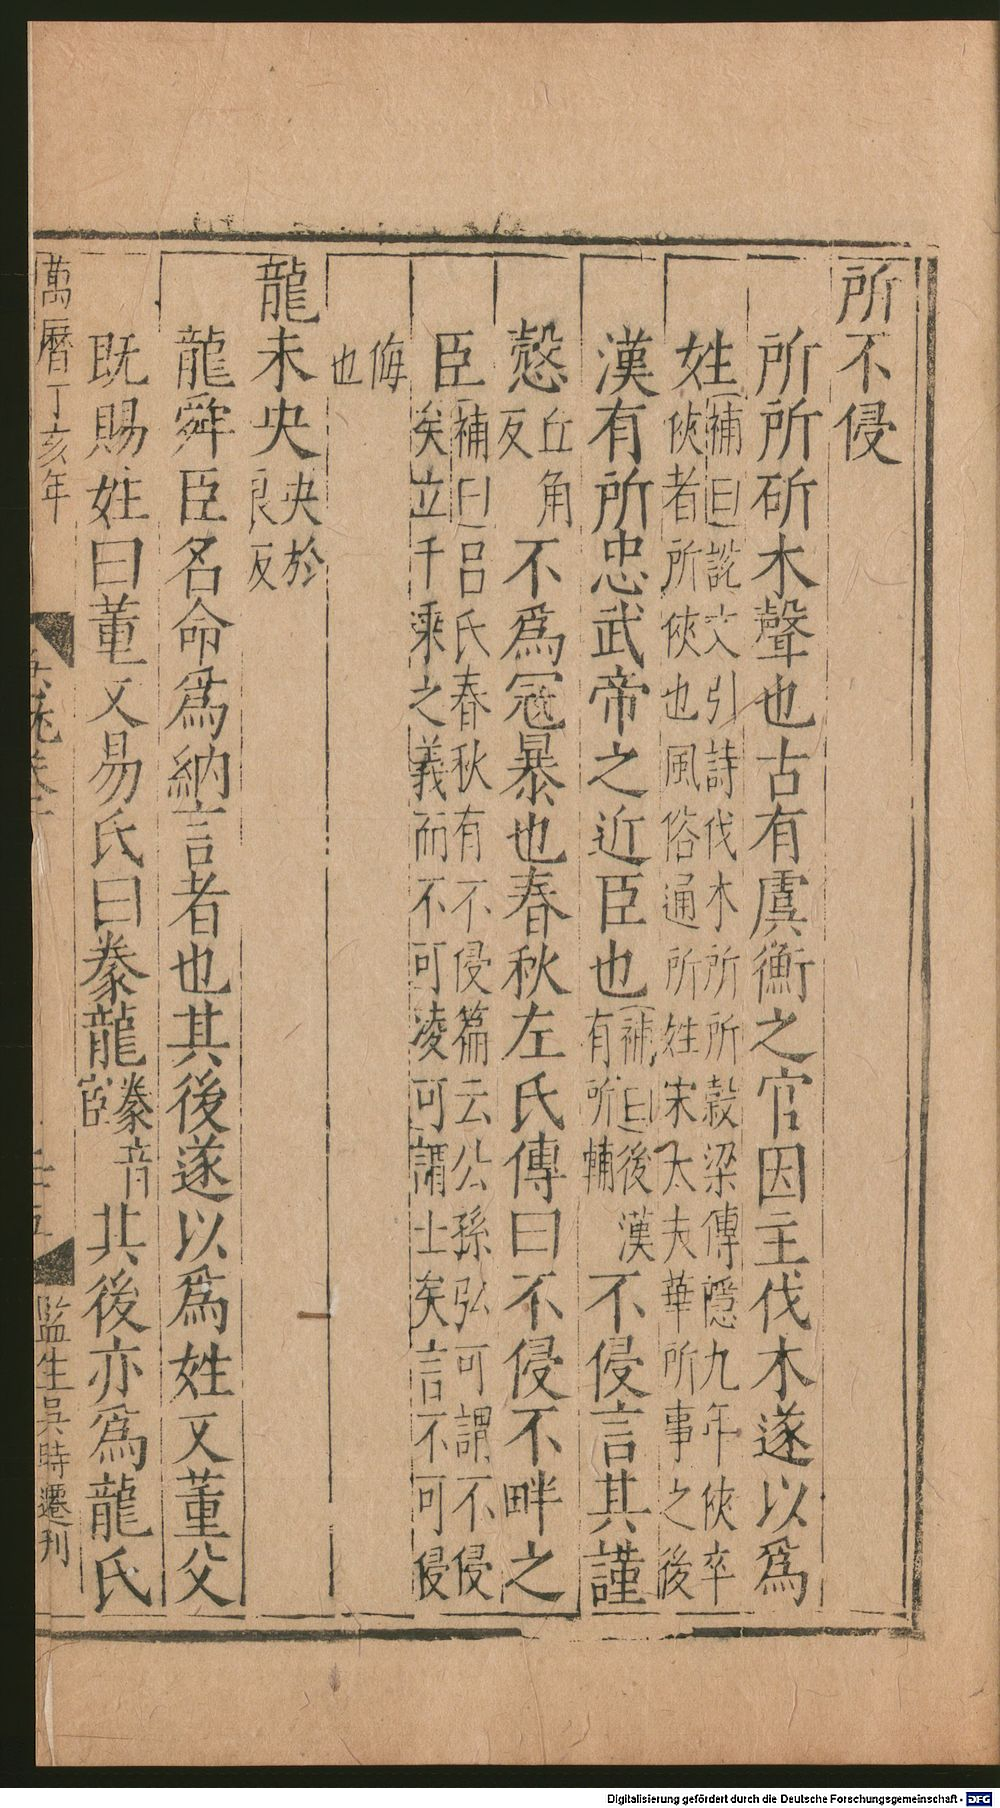 所不侵
所所斫木聲也古有虞衡之官因主伐木遂以爲
姓補曰說文引詩伐木所所穀梁傳隱九年俠卒
俠者所俠也風俗通所姓宋大夫華所事之後
漢有所忠武帝之近臣也補曰後漢
有所輔不侵言其謹
慤丘角
反不爲冦暴也春秋左氏傳曰不侵不畔之
臣補曰呂氏春秋有不侵篇云公孫弘可謂不侵
矣立千乘之義而不可凌可謂士矣言不可侵
侮
也
龍未央央於
良反
龍舜臣名命爲納言者也其後遂以爲姓又董父
既賜姓曰董又易氏曰豢龍豢音
宦其後亦爲龍氏
萬曆丁亥年
監生吳時遷刊
Digitalisierung gefördert durch die Deutsche Forschungsgemeinschaft - DFG